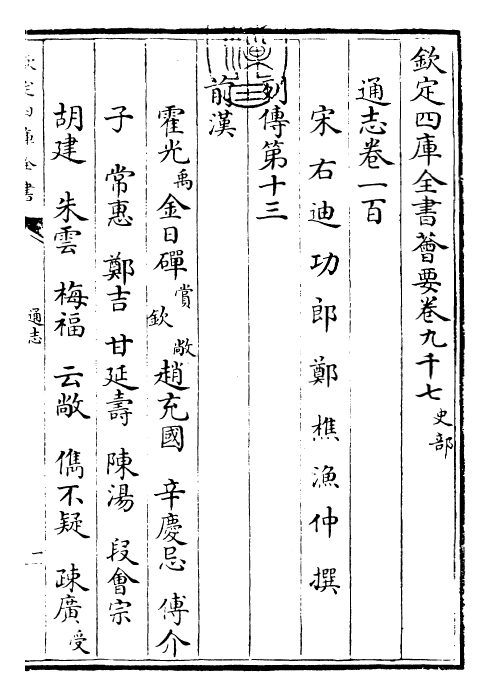 欽定四庫全書薈要卷九千七 史部
通志卷一百
宋右迪功郎鄭樵漁仲撰
列傳第十三
前漢
霍光 禹 金日磾 賞 敞 欽 趙充國 辛慶忌 傅介
子 常惠 鄭吉 甘延壽 陳湯 段會宗
胡建 朱雲 梅福 云敞 儁不疑 疎廣 受
欽定四庫全書
通志